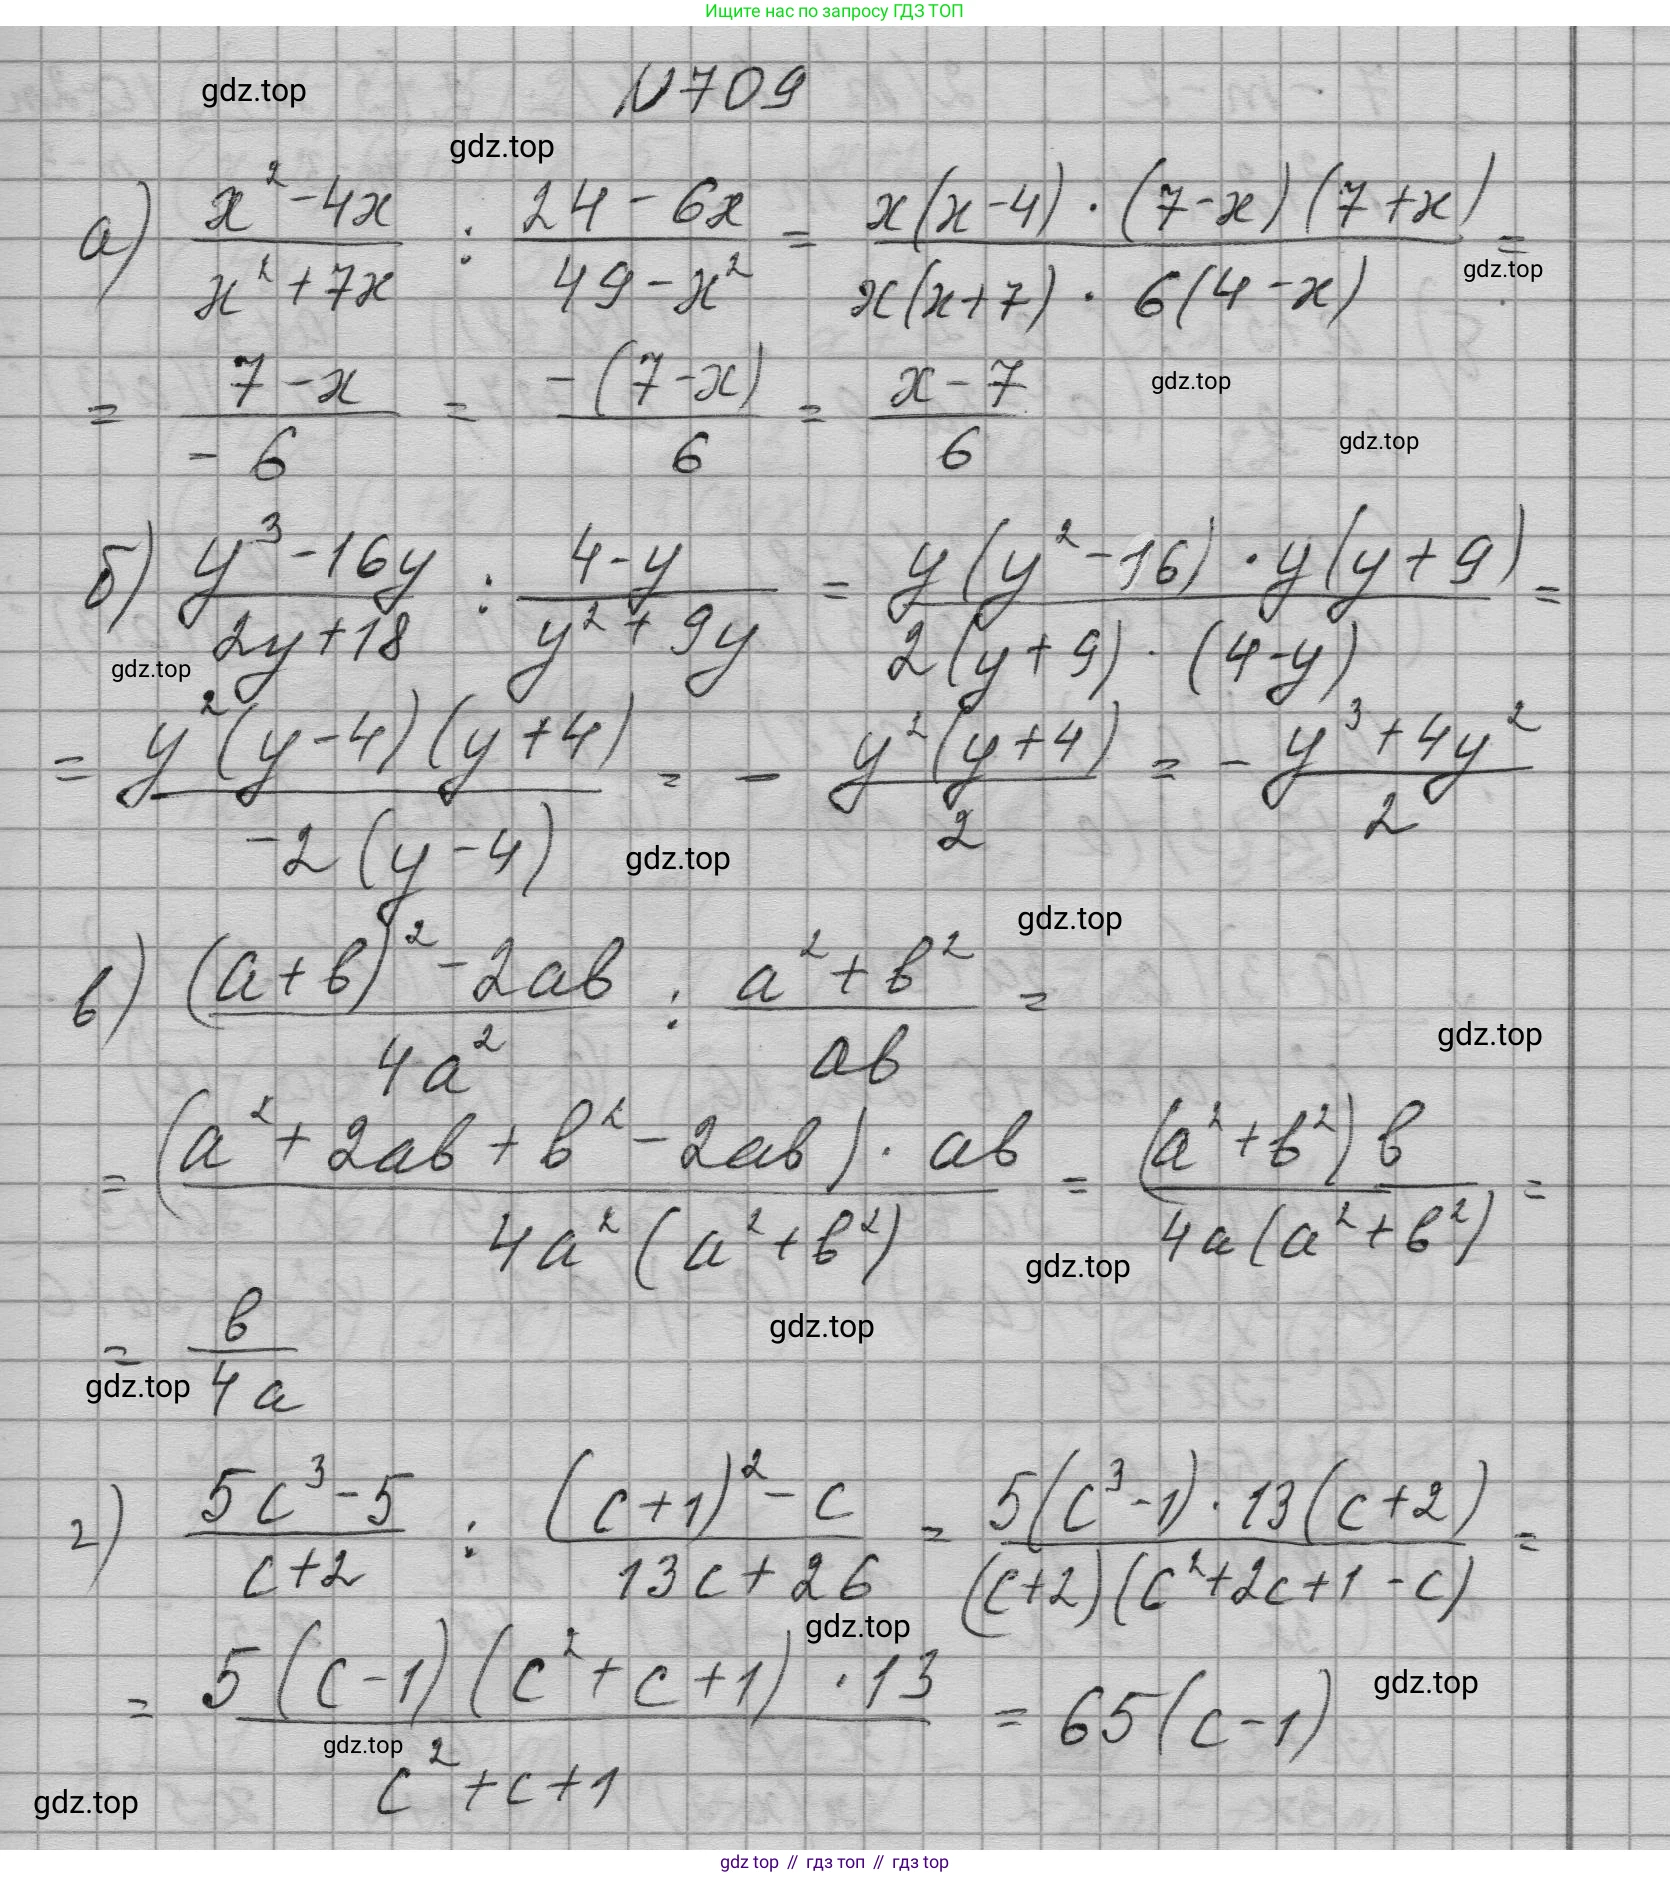 Ищите нас по запросу ГДЗ ТОП
gdz.top
N709
gdz.top
а) (x² - 4x)/(x² + 7x) : (24 - 6x)/(49 - x²) = (x(x-4) · (7-x)(7+x))/(x(x+7) · 6(4-x)) =
gdz.top
= (7-x)/(-6) = (-(7-x))/6 = (x-7)/6
gdz.top
gdz.top
б) (y³ - 16y)/(2y+18) : (4-y)/(y² + 9y) = (y(y² - 16) · y(y+9))/(2(y+9) · (4-y)) =
gdz.top
= (y²(y-4)(y+4))/(-2(y-4)) = - (y²(y+4))/2 = - (y³ + 4y²)/2
gdz.top
gdz.top
в) ((a+b)² - 2ab)/(4a²) : (a² + b²)/(ab) =
gdz.top
= ((a² + 2ab + b² - 2ab) · ab)/(4a²(a² + b²)) = ((a² + b²)b)/(4a(a² + b²)) =
gdz.top
gdz.top
= b/(4a)
gdz.top
г) (5c³ - 5)/(c+2) : ((c+1)² - c)/(13c + 26) = (5(c³ - 1) · 13(c+2))/((c+2)(c² + 2c + 1 - c)) =
gdz.top
= (5(c-1)(c² + c + 1) · 13)/(c² + c + 1) = 65(c-1)
gdz.top
gdz.top
gdz.top
gdz top // гдз топ // гдз top